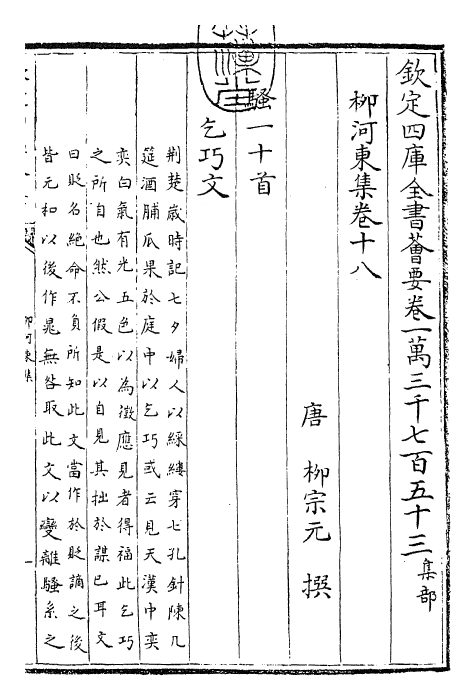 欽定四庫全書薈要卷一萬三千七百五十三集部
柳河東集卷十八
唐　柳宗元　撰
騷一十首
乞巧文
荆楚歲時記七夕婦人以綵縷穿七孔針陳几
筵酒脯瓜果於庭中以乞巧或云見天漢中奕
奕白氣有光五色以為徵應見者得福此乞巧
之所自也然公假是以自見其拙於謀已耳文
曰貶名絶命不負所知此文當作於貶謫之後
皆元和以後作晁無咎取此文以變離騷系之
柳河東集
一